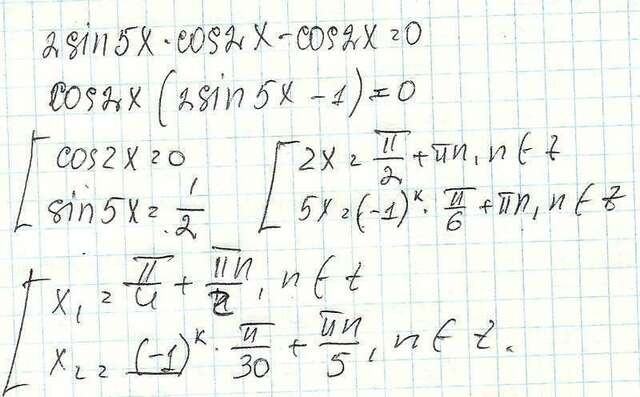 2sin5x·cos2x-cos2x=0
cos2x(2sin5x-1)=0
[ cos2x=0 [ 2x=π/2+πn, n∈Z
[ sin5x=1/2 [ 5x=(-1)^k·π/6+πn, n∈Z
[ x₁=π/4+πn/2, n∈Z
[ x₂=(-1)^k·π/30+πn/5, n∈Z.